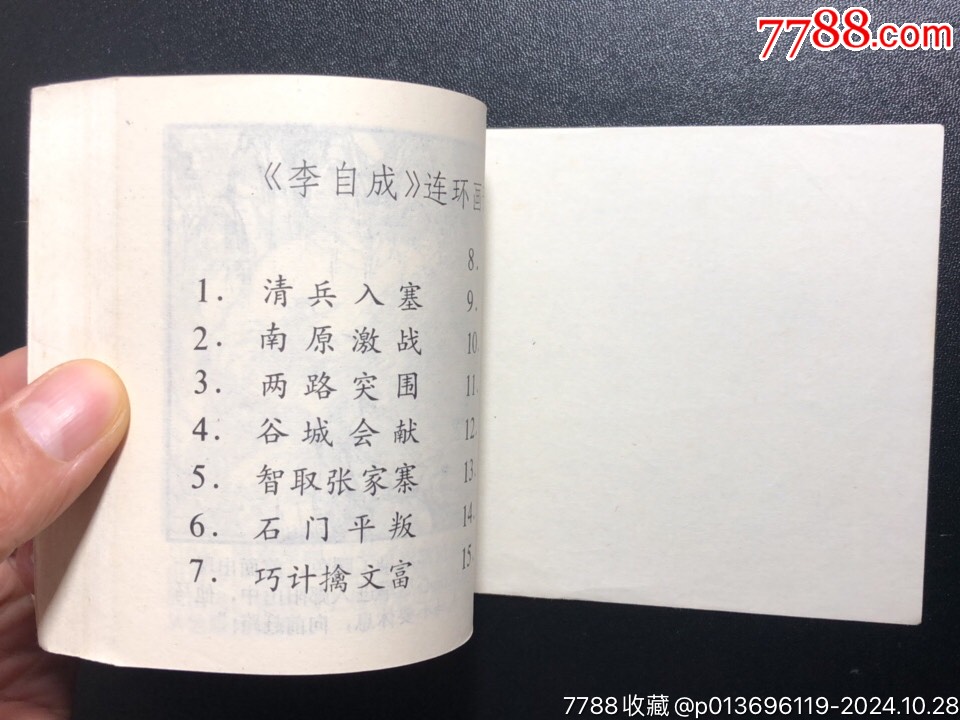 7788.com
《李自成》连环画
1. 清兵入塞
2. 南原激战
3. 两路突围
4. 谷城会献
5. 智取张家寨
6. 石门平叛
7. 巧计擒文富
8.
9.
10.
11.
12.
13.
14.
15.
7788收藏@p013696119-2024.10.28